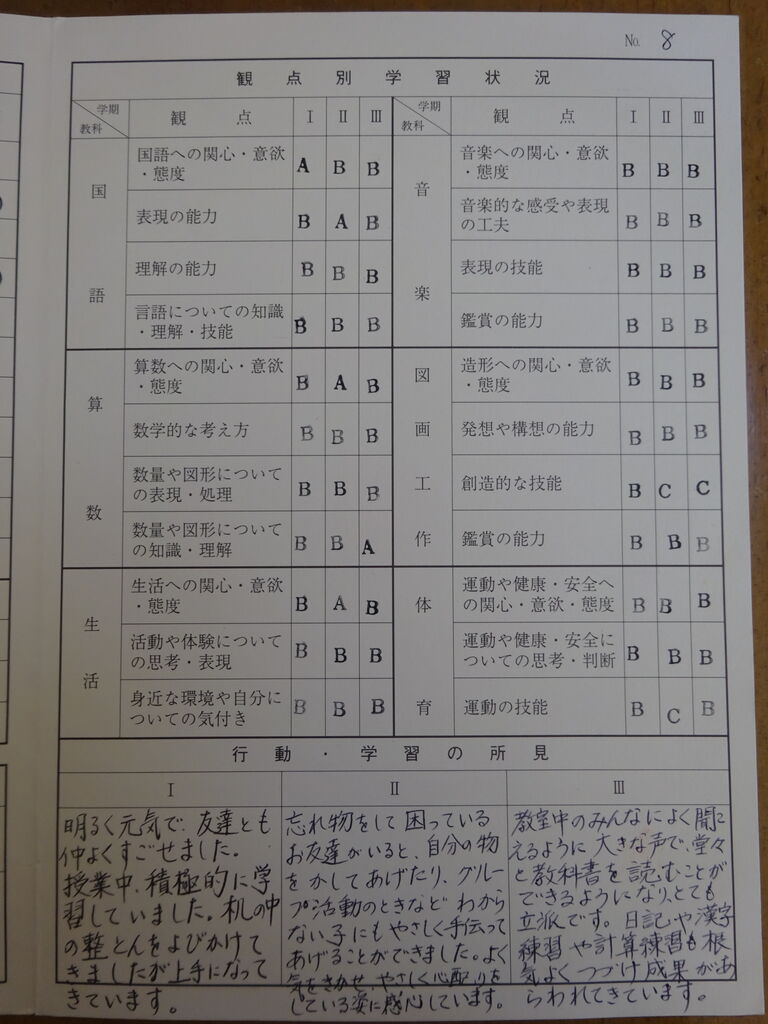 No. 8
観点別学習状況
学期 教科 観点 I II III
国語
国語への関心・意欲
・態度 A B B
表現の能力 B A B
理解の能力 B B B
言語についての知識
・理解・技能 B B B
算数
算数への関心・意欲
・態度 B A B
数学的な考え方 B B B
数量や図形について
の表現・処理 B B B
数量や図形について
の知識・理解 B B A
生活
生活への関心・意欲
・態度 B A B
活動や体験について
の思考・表現 B B B
身近な環境や自分に
ついての気付き B B B
学期 教科 観点 I II III
音楽
音楽への関心・意欲
・態度 B B B
音楽的な感受や表現
の工夫 B B B
表現の技能 B B B
鑑賞の能力 B B B
図画工作
造形への関心・意欲
・態度 B B B
発想や構想の能力 B B B
創造的な技能 B C C
鑑賞の能力 B B B
体育
運動や健康・安全へ
の関心・意欲・態度 B B B
運動や健康・安全に
ついての思考・判断 B B B
運動の技能 B C B
行動・学習の所見
I
明るく元気で、友達とも
仲よくすごせました。
授業中、積極的に学
習していました。机の中
の整とんをよびかけて
きましたが上手になって
きています。
II
忘れ物をして困っている
お友達がいると、自分の物
をかしてあげたり、グルー
プ活動のときなどわから
ない子にもやさしく手伝って
あげることができました。よく
気をきかせ、やさしく心配りを
している姿に感心しています。
III
教室中のみんなによく聞こ
えるように大きな声で、堂々
と教科書を読むことが
できるようになり、とても
立派です。日記や漢字
練習や計算練習も根
気よくつづけ成果があ
らわれてきています。